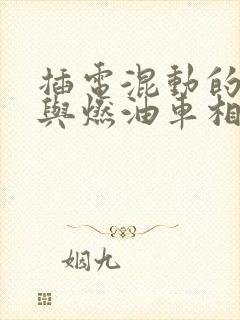 插电混動的
與燃油車相
姻九